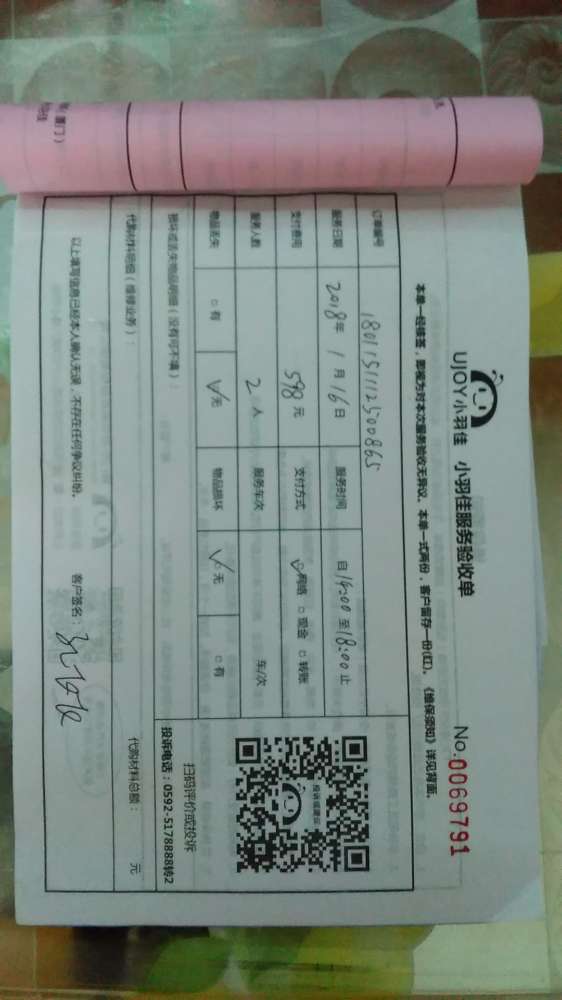 UJOY小羽佳 小羽佳服务验收单
No.0069791
本单一经接签，即视为对本次服务验收无异议。本单一式两份，客户留存一份(红)。《维保须知》详见背面。
订单编号 1801151112500865
服务日期 2018年1月16日 服务时间 自14:00至18:00止
支付费用 598元 支付方式 ☑网络 □现金 □转账
服务人数 2人 服务车次 车/次
物品丢失 □有 ☑无 物品损坏 ☑无 □有
投诉或建议
扫码评价或投诉
投诉电话：0592-5178888转2
损坏或丢失物品明细（没有可不填）：
代购材料明细（维修业务）： 代购材料总额： 元
以上填写信息已经本人确认无误，不存在任何争议纠纷。 客户签名：